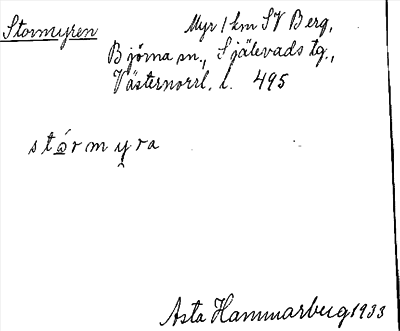 Stormyren
Myr 1 km SV Berg,
Björna sn., Själevads tg.,
Västernorrl. l. 495
stårmyra
Asta Hammarberg 1933